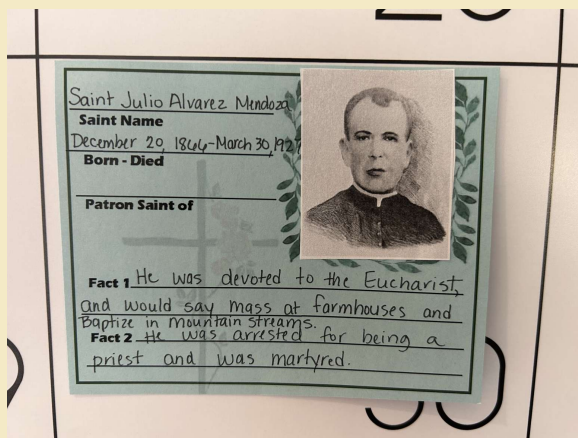 Saint Julio Alvarez Mendoza
Saint Name
December 20, 1866-March 30, 1927
Born - Died
Patron Saint of
Fact 1 He was devoted to the Eucharist,
and would say mass at farmhouses and
Baptize in mountain streams.
Fact 2 He was arrested for being a
priest and was martyred.
30